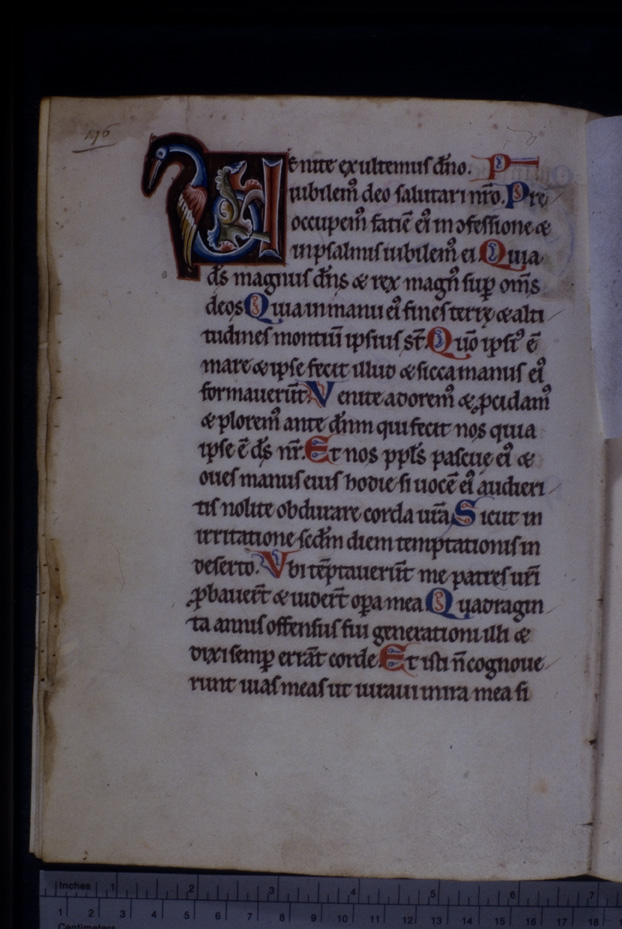 196
Venite exultemus dño. P
iubilem⁹ deo salutari nr̄o. Pre
occupem⁹ faciē ei⁹ in ɔfessione &
in psalmis iubilem⁹ ei Quia
ds̄ magnus dn̄s & rex magn⁹ sup̄ om̄s
deos Quia in manu ei⁹ fines terrę & alti
tudines montiū ipsius sт̄. Qm̄o ipsi⁹ ē
mare & ipse fecit illud & sicca manus ei⁹
formauerūt Venite adorem⁹ & ꝓcidam⁹
& plorem⁹ ante dn̄m qui fecit nos quia
ipse ē ds̄ nr̄. Et nos ppl̄s pascue ei⁹ &
oues manus eius hodie si uocē ei⁹ audieri
tis nolite obdurare corda ur̄a Sicut in
irritatione sedm̄ diem temptationis in
deserto. Vbi tēptauerūt me patres ur̄i
ꝓbauer̄t & uider̄t oꝑa mea Quadragin
ta annis offensus fui generationi illi &
dixi semꝑ errāt corde Et isti n̄ cognoue
runt uias meas ut iuraui in ira mea si
Inches 1 2 3 4 5 6 7
1 2 3 4 5 6 7 8 9 10 11 12 13 14 15 16 17 18
Centimeters